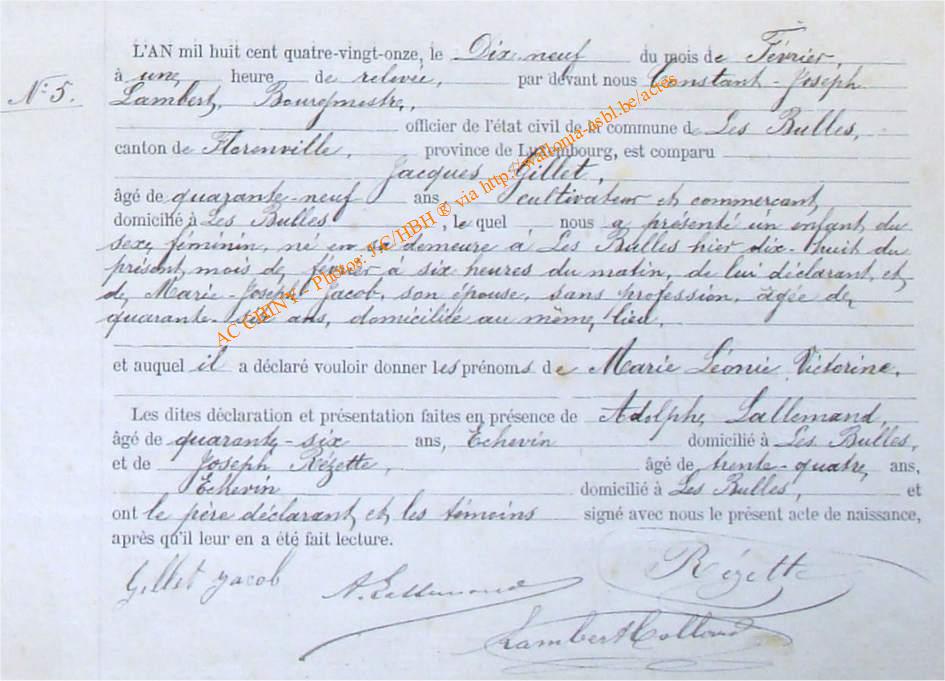 L'AN mil huit cent quatre-vingt-onze, le Dix neuf du mois de Février,
N° 5.
à une heure de relevée, par devant nous Constant-Joseph
Lambert, Bourgmestre,
officier de l'état civil de la commune de Les Bulles,
canton de Florenville, province de Luxembourg, est comparu
Jacques Gillet,
âgé de quarante-neuf ans cultivateur et commerçant,
domicilié à Les Bulles, le quel nous a présenté un enfant du
sexe féminin, né en sa demeure à Les Bulles hier dix-huit du
présent mois de février à six heures du matin, de lui déclarant et
de Marie-Joseph Jacob, son épouse, sans profession, agée de
quarante-six ans, domicilié au même lieu,
et auquel il a déclaré vouloir donner les prénoms de Marie Léonie Victorine.
Les dites déclaration et présentation faites en présence de Adolphe Lallemand,
âgé de quarante-six ans, Echevin domicilié à Les Bulles,
et de Joseph Rézette, âgé de trente-quatre ans,
Echevin domicilié à Les Bulles, et
ont le père déclarant et les témoins signé avec nous le présent acte de naissance,
après qu'il leur en a été fait lecture.
Gillet Jacob
A. Lallemand
Rézette
Lambert
AC CHINY - Photos: J.C/HBH ® via http://wallonia-asbl.be/actes